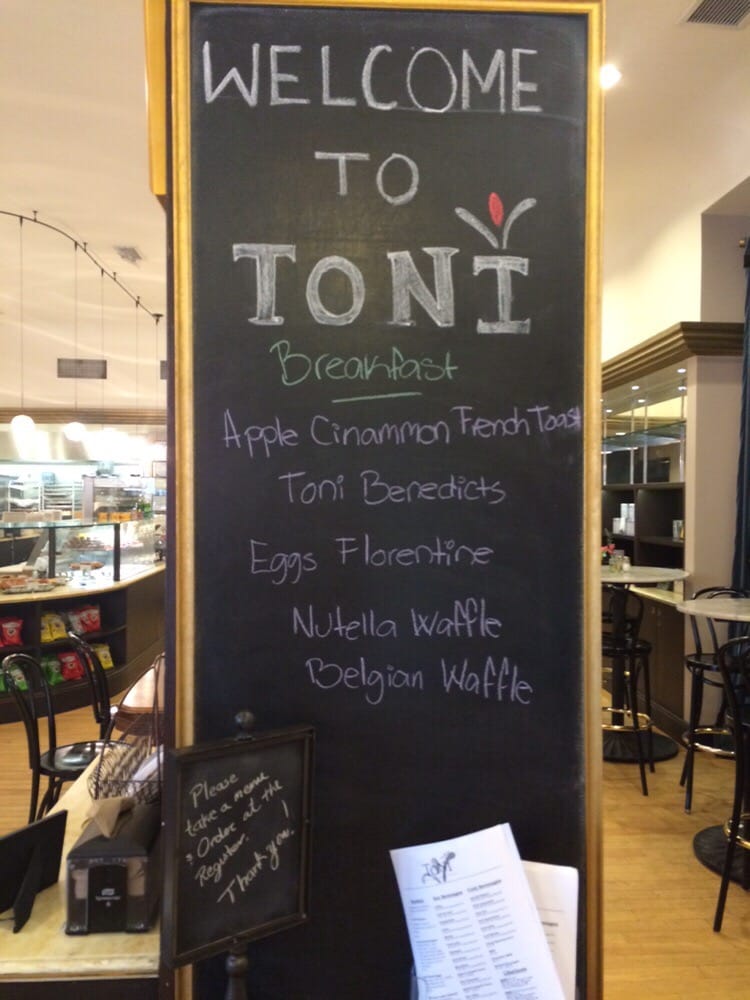 WELCOME
TO
TONI
Breakfast
Apple Cinammon French Toast
Toni Benedicts
Eggs Florentine
Nutella Waffle
Belgian Waffle
Please
take a menu
& Order at the
Register.
Thank you!
TONI